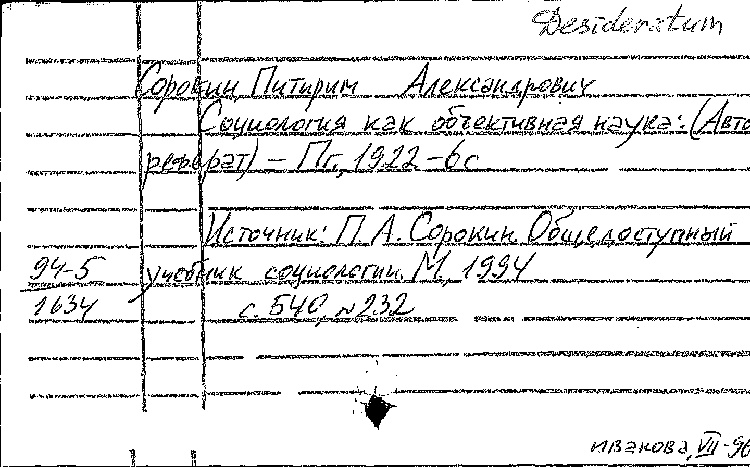 Desideratum
Сорокин Питирим Александрович
Социология как объективная наука: (Авто
реферат) – Пг., 1922. – 6 с
Источник: П. А. Сорокин. Общедоступный
94-5 учебник социологии. М., 1994
1634 с. 540, №232
Иванова, VII-96